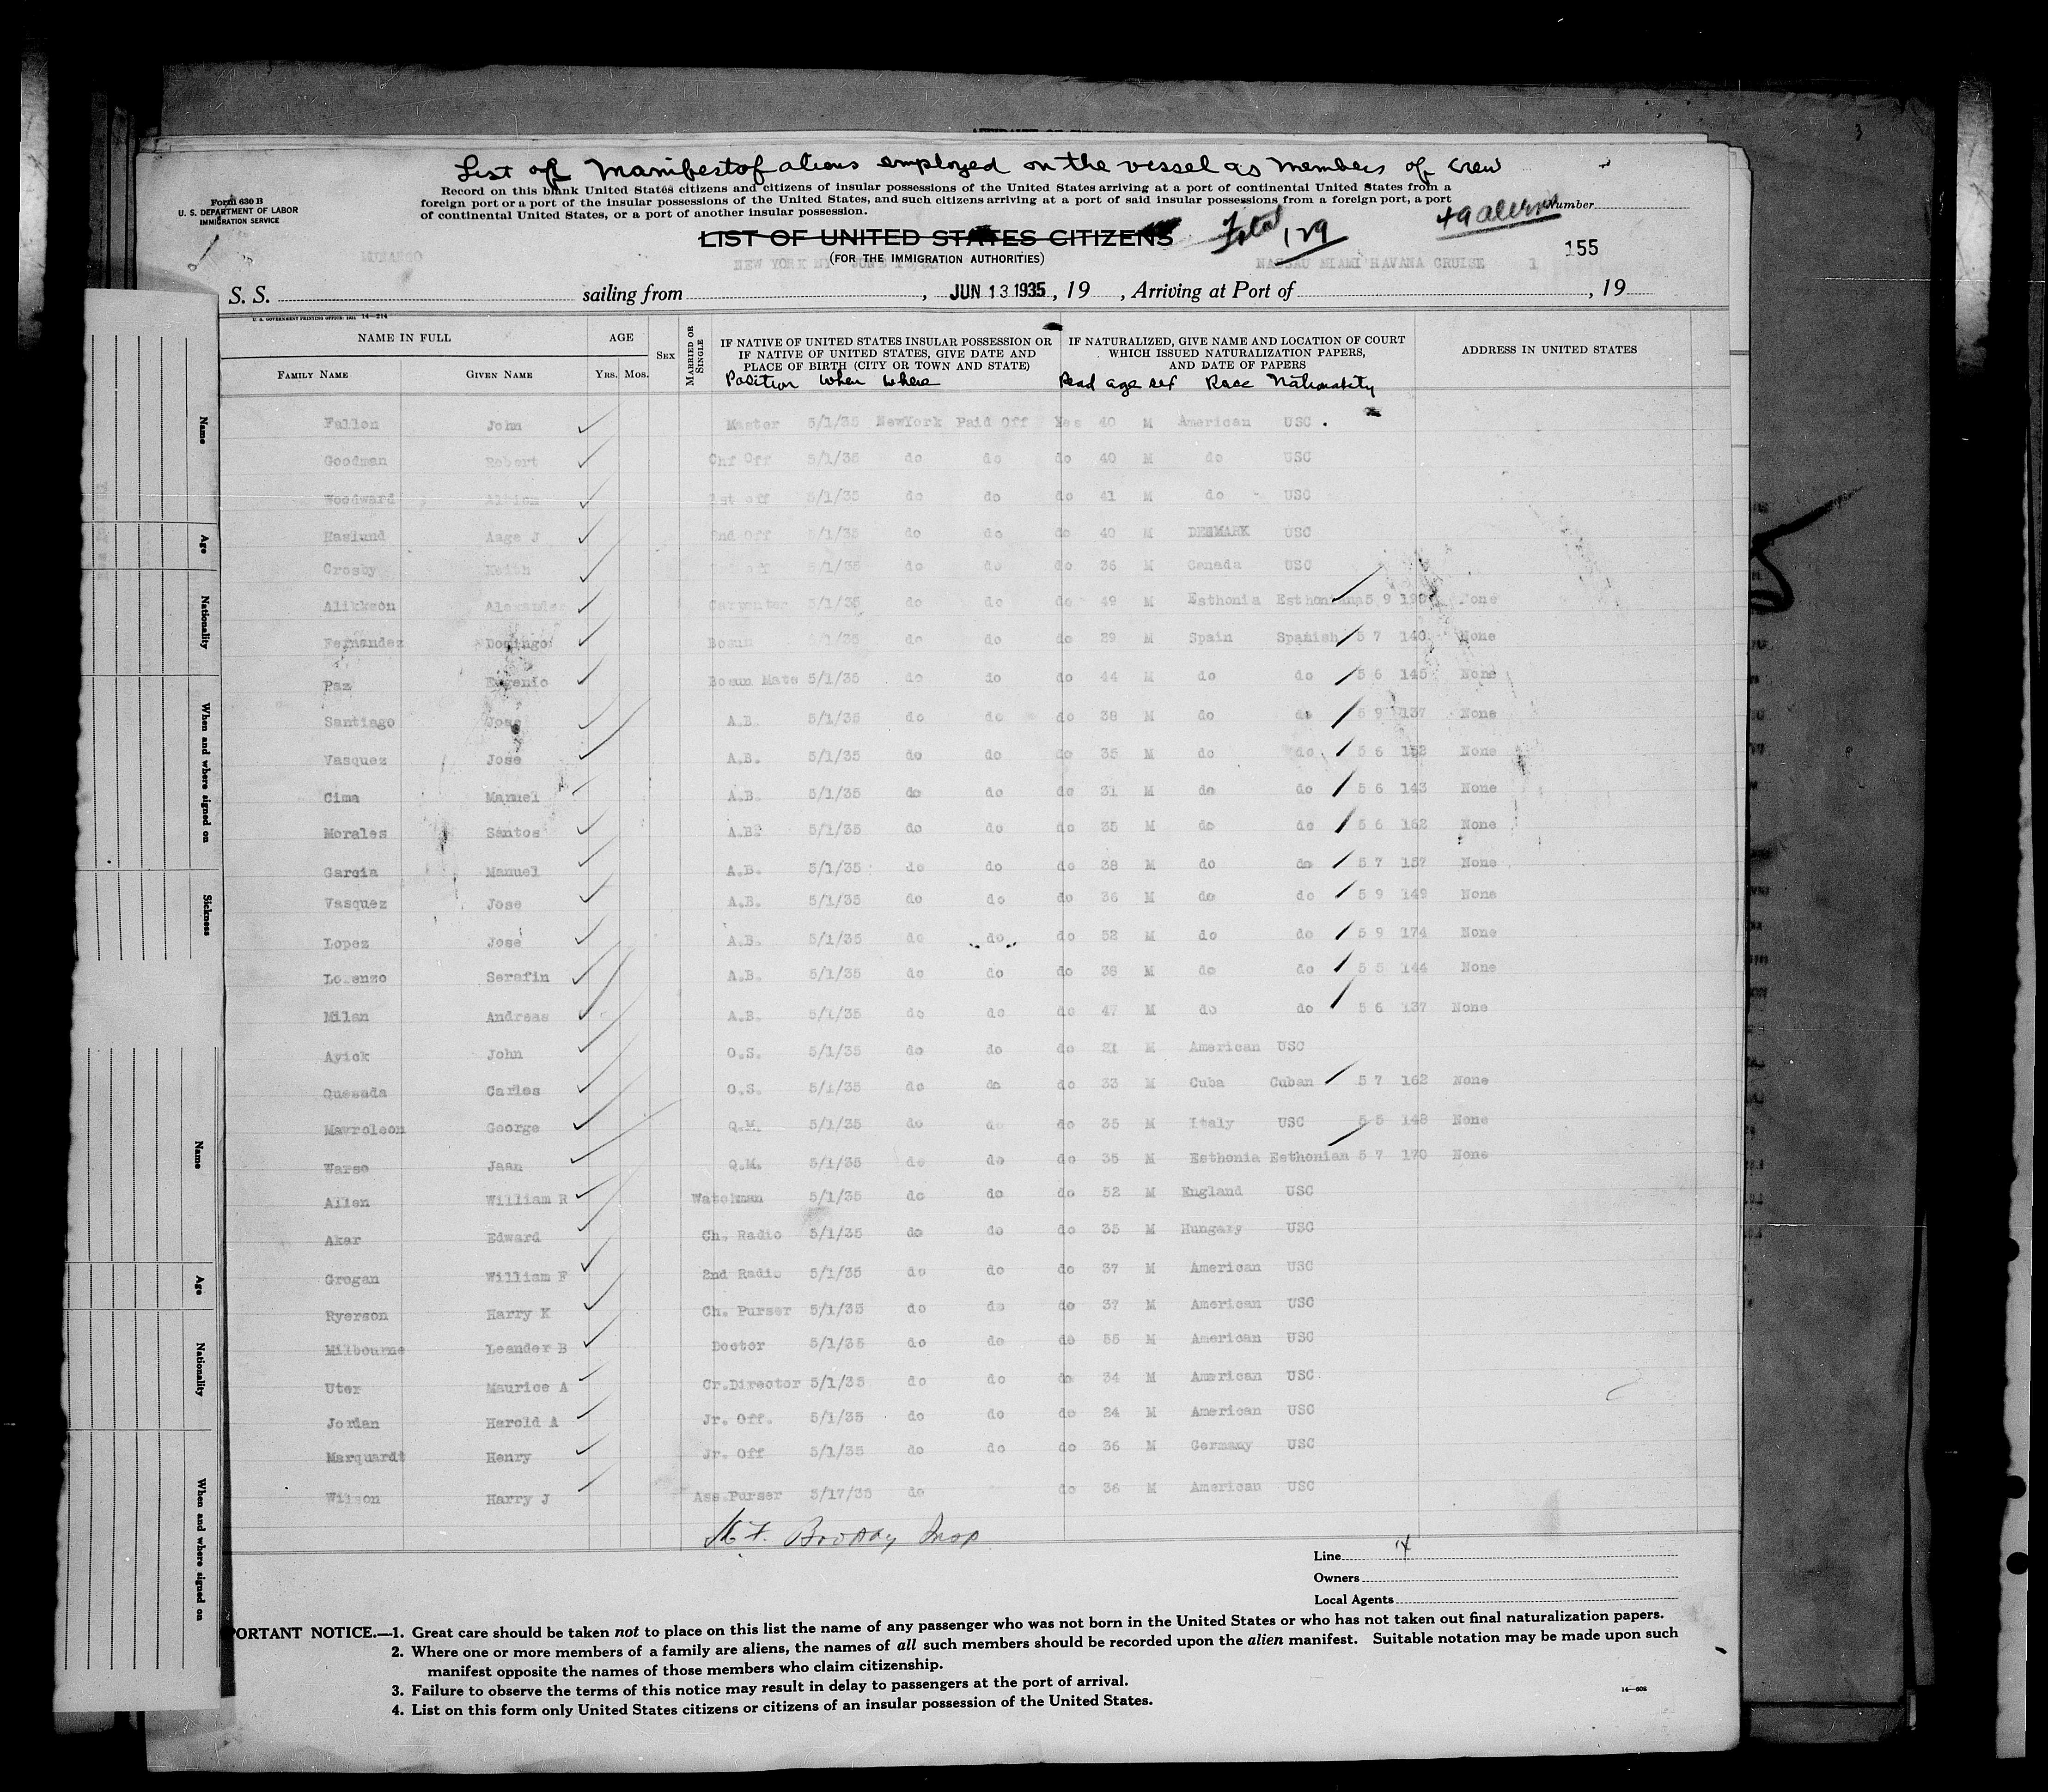 List of Manifest of aliens employed on the vessel as members of crew
Form 630 B
U. S. DEPARTMENT OF LABOR
IMMIGRATION SERVICE
Record on this blank United States citizens and citizens of insular possessions of the United States arriving at a port of continental United States from a
foreign port or a port of the insular possessions of the United States, and such citizens arriving at a port of said insular possessions from a foreign port, a port
of continental United States, or a port of another insular possession.
Number
49 aliens
LIST OF UNITED STATES CITIZENS
Total 129
(FOR THE IMMIGRATION AUTHORITIES)
155
MUNARGO NEW YORK NY JUNE NASSAU MIAMI HAVANA CRUISE 1
S. S. sailing from , JUN 13 1935, 19 , Arriving at Port of , 19
U. S. GOVERNMENT PRINTING OFFICE: 1931 14—214
NAME IN FULL
FAMILY NAME GIVEN NAME
AGE
YRS. MOS.
SEX
MARRIED OR SINGLE
IF NATIVE OF UNITED STATES INSULAR POSSESSION OR
IF NATIVE OF UNITED STATES, GIVE DATE AND
PLACE OF BIRTH (CITY OR TOWN AND STATE)
Position When Where
IF NATURALIZED, GIVE NAME AND LOCATION OF COURT
WHICH ISSUED NATURALIZATION PAPERS,
AND DATE OF PAPERS
Read age sex Race Nationality
ADDRESS IN UNITED STATES
Fallon John Master 5/1/35 NewYork Paid Off Yes 40 M American USC
Goodman Robert Chf Off 5/1/35 do do do 40 M do USC
Woodward 1st off 5/1/35 do do do 41 M do USC
Haslund Aage J 2nd Off 5/1/35 do do do 40 M DENMARK USC
Crosby Keith off 5/1/35 do do do 36 M Canada USC
Alikkson Alexander Carpenter 5/1/35 do do do 49 M Esthonia Esthonian 5 9 190 None
Fernandez Domingo Bosun 5/1/35 do do do 29 M Spain Spanish 5 7 140 None
Paz Eugenio Bosun Mate 5/1/35 do do do 44 M do do 5 6 145 None
Santiago Jose A.B. 5/1/35 do do do 38 M do do 5 9 137 None
Vasquez Jose A.B. 5/1/35 do do do 35 M do do 5 6 152 None
Cima Manuel A.B. 5/1/35 do do do 31 M do do 5 6 143 None
Morales Santos A.B. 5/1/35 do do do 35 M do do 5 6 162 None
Garcia Manuel A.B. 5/1/35 do do do 38 M do do 5 7 157 None
Vasquez Jose A.B. 5/1/35 do do do 36 M do do 5 9 149 None
Lopez Jose A.B. 5/1/35 do do do 52 M do do 5 9 174 None
Lorenzo Serafin A.B. 5/1/35 do do do 38 M do do 5 5 144 None
Milan Andreas A.B. 5/1/35 do do do 47 M do do 5 6 137 None
Ayick John O.S. 5/1/35 do do do 21 M American USC
Quesada Carlos O.S. 5/1/35 do do do 33 M Cuba Cuban 5 7 162 None
Mavroleon George Q.M. 5/1/35 do do do 35 M Italy USC 5 5 148 None
Warso Jaan Q.M. 5/1/35 do do do 35 M Esthonia Esthonian 5 7 170 None
Allen William R Watchman 5/1/35 do do do 52 M England USC
Akar Edward Ch. Radio 5/1/35 do do do 35 M Hungary USC
Grogan William F 2nd Radio 5/1/35 do do do 37 M American USC
Ryerson Harry K Ch. Purser 5/1/35 do do do 37 M American USC
Milbourne Leander B Doctor 5/1/35 do do do 55 M American USC
Uter Maurice A Cr.Director 5/1/35 do do do 34 M American USC
Jordan Harold A Jr. Off. 5/1/35 do do do 24 M American USC
Marquardt Henry Jr. Off 5/1/35 do do do 36 M Germany USC
Wilson Harry J Ass.Purser 5/17/35 do do 36 M American USC
Insp
Line 14
Owners
Local Agents
PORTANT NOTICE.—1. Great care should be taken not to place on this list the name of any passenger who was not born in the United States or who has not taken out final naturalization papers.
2. Where one or more members of a family are aliens, the names of all such members should be recorded upon the alien manifest. Suitable notation may be made upon such
manifest opposite the names of those members who claim citizenship.
3. Failure to observe the terms of this notice may result in delay to passengers at the port of arrival.
4. List on this form only United States citizens or citizens of an insular possession of the United States.
14—608
Name
Age
Nationality
When and where signed on
Sickness
Name
Age
Nationality
When and where signed on